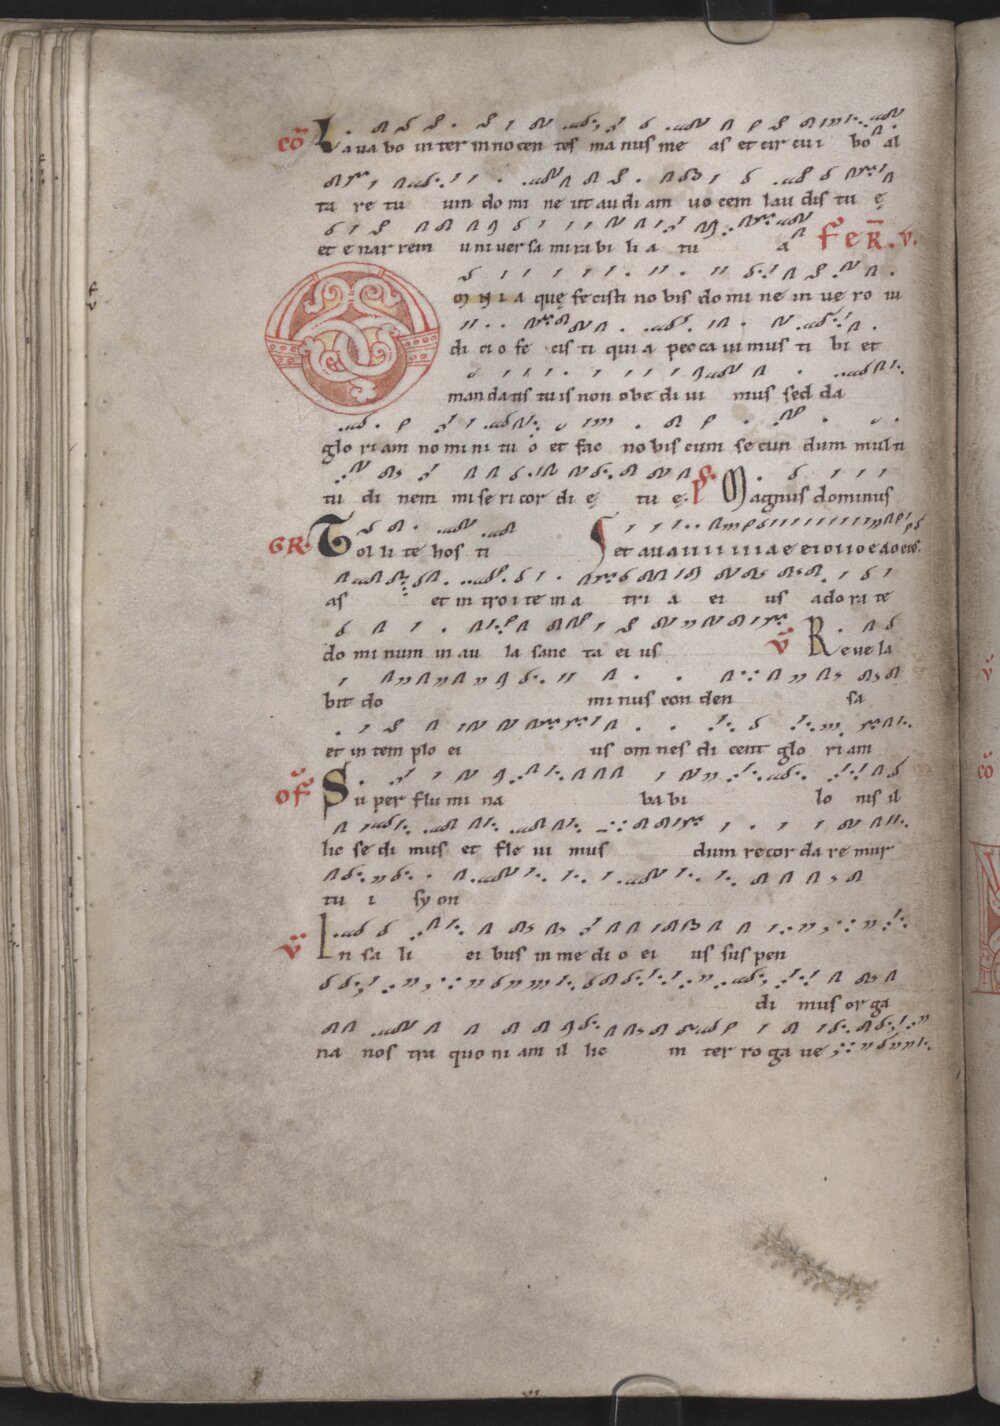 cō Lavabo inter innocen tes manus me as et circui bo al
ta re tu um domi ne ut audiam vocem lau dis tu ę
et enarrem universa mirabi li a tu a FER̄. V.
Omnia quę fecisti nobis domine in vero iu
di ci o fe cis ti qui a peccavimus ti bi et
mandatis tuis non obedivi mus sed da
glo riam nomini tu o et fac nobis cum secun dum multi
tu di nem misericor di ę tu ę. Magnus dominus
GR. Tol li te hos ti
as et in troite in a tri a ei us adora te
do minum in au la sanc ta ei us v̄ Revela
bit do minus conden sa
et in templo ei us omnes dicent glo ri am
of Super flumi na babi lo nis il
lic se di mus et fle vi mus dum recordaremur
tu i syon
v̄ In sa li cibus in medi o ei us suspen
di mus orga
na nos tra quoniam il lic in ter roga ve
VI